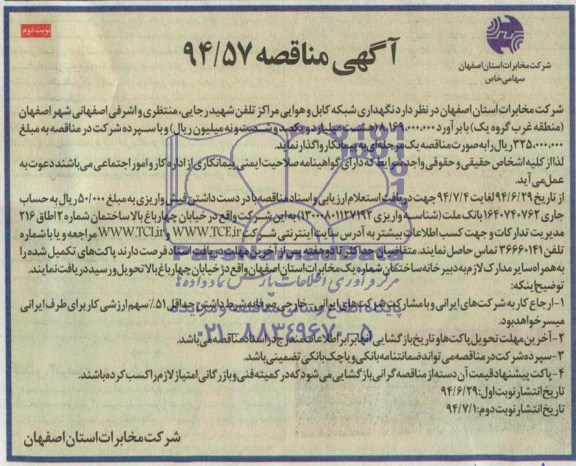 نوبت دوم
شرکت مخابرات استان اصفهان
سهامی خاص
آگهی مناقصه ۹۴/۵۷
شرکت مخابرات استان اصفهان در نظر دارد نگهداری شبکه کابل و هوایی مراکز تلفن شهید رجایی، منتظری و اشرفی اصفهانی شهر اصفهان
(منطقه غرب گروه یک) با برآورد ۸.۱۶۹.۰۰۰.۰۰۰ (هشت میلیارد و یکصد و شصت و نه میلیون ریال) و با سپرده شرکت در مناقصه به مبلغ
۳۲۵.۰۰۰.۰۰۰ ریال را به صورت مناقصه یک مرحله‌ای به پیمانکار واگذار نماید.
لذا از کلیه اشخاص حقیقی و حقوقی واجد شرایط که دارای گواهینامه صلاحیت ایمنی پیمانکاری از اداره کار و امور اجتماعی می‌باشند دعوت به
عمل می‌آید.
از تاریخ ۹۴/۶/۲۹ لغایت ۹۴/۷/۴ جهت دریافت استعلام ارزیابی و اسناد مناقصه با در دست داشتن فیش واریزی به مبلغ ۵۰/۰۰۰ ریال به حساب
جاری ۱۶۴۰۷۴۰۷۶۲ بانک ملت (شناسه واریزی ۱۳۰۰۰۸۰۱۱۲۷۱۹۲) به این شرکت واقع در خیابان چهارباغ بالا ساختمان شماره ۲ اطاق ۲۱۶
مدیریت تدارکات و جهت کسب اطلاعات بیشتر به آدرس سایت اینترنتی شرکت WWW.TCE.ir و WWW.TCI.ir مراجعه و یا با شماره
تلفن ۳۶۶۶۰۱۴۱ تماس حاصل نمایند. متقاضیان حداکثر تا دو هفته پس از آخرین مهلت دریافت اسناد فرصت دارند پاکت‌های تکمیل شده را
به همراه سایر مدارک لازم به دبیرخانه ساختمان شماره یک مخابرات استان اصفهان واقع در خیابان چهارباغ بالا تحویل و رسید دریافت نمایند.
توضیح اینکه:
۱- ارجاع کار به شرکت‌های ایرانی و یا مشارکت شرکت‌های ایرانی - خارجی صرفاً به شرط داشتن حداقل ۵۱٪ سهم ارزشی کار برای طرف ایرانی
میسر خواهد بود.
۲- آخرین مهلت تحویل پاکت‌ها و تاریخ بازگشایی آنها برابر اطلاعات مندرج در اسناد مناقصه می‌باشد.
۳- سپرده شرکت در مناقصه می‌تواند ضمانتنامه بانکی و یا چک بانکی تضمینی باشد.
۴- پاکت پیشنهاد قیمت آن دسته از مناقصه گرانی بازگشایی می‌شود که در کمیته فنی و بازرگانی امتیاز لازم را کسب کرده باشند.
تاریخ انتشار نوبت اول: ۹۴/۶/۲۹
تاریخ انتشار نوبت دوم: ۹۴/۷/۱
شرکت مخابرات استان اصفهان
ParsNamadData
مرکز فرآوری اطلاعات پارس نماد داده‌ها
پایگاه اطلاع رسانی مناقصه و مزایده
۰۲۱-۸۸۳۴۹۶۷۰-۵